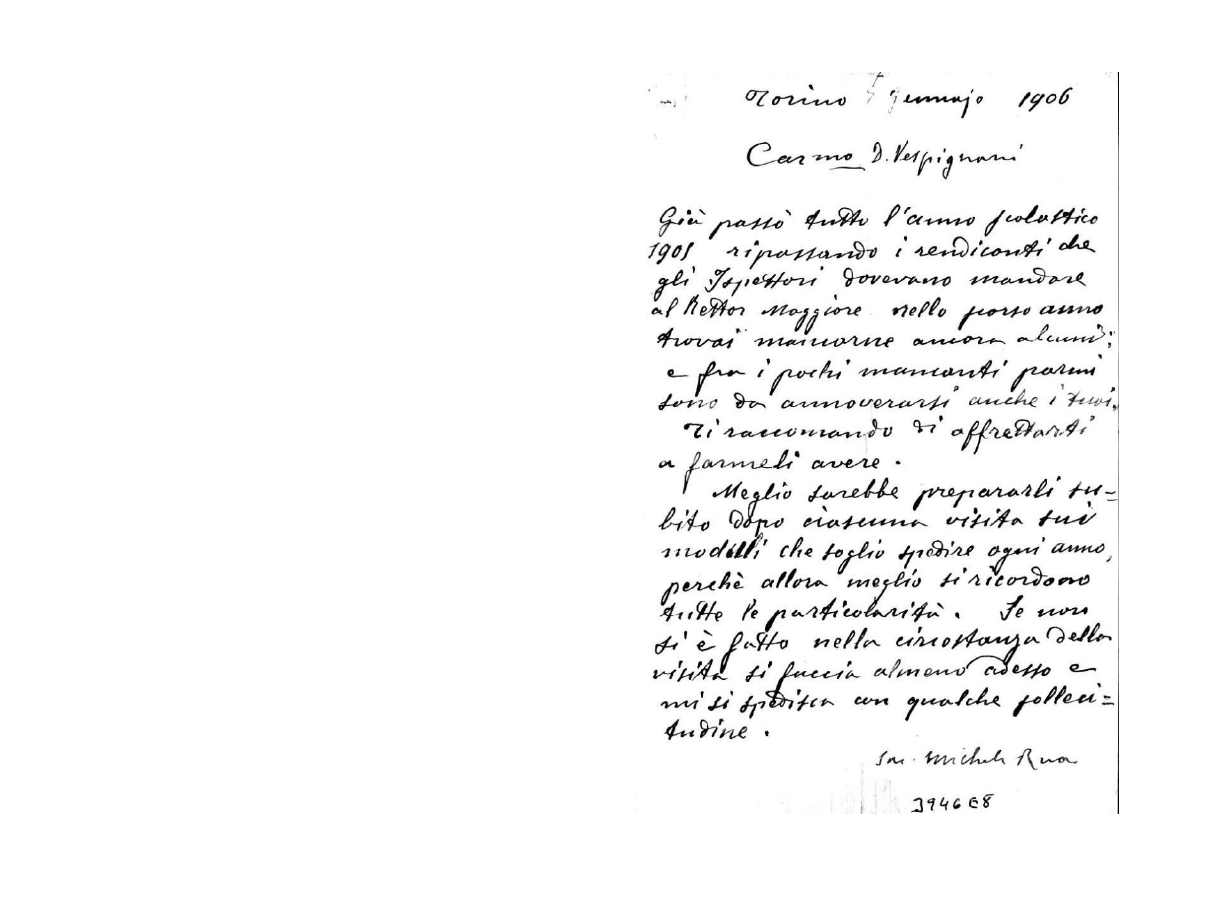 Torino 7 Gennajo 1906
Carmo D. Vespignani
Già passò tutto l'anno scolastico
1905 ripassando i rendiconti che
gli Ispettori dovevano mandare
al Rettor Maggiore nello scorso anno
trovai mancarne ancora alcuni;
e fra i pochi mancanti parmi
sono da annoverarsi anche i tuoi.
Ti raccomando di affrettarti
a farmeli avere.
Meglio sarebbe prepararli su=
bito dopo ciascuna visita sui
modelli che soglio spedire ogni anno,
perchè allora meglio si ricordano
tutte le particolarità. Se non
si è fatto nella circostanza della
visita si faccia almeno adesso e
mi si spedisca con qualche solleci=
tudine.
Sac. Michele Rua
3946E8